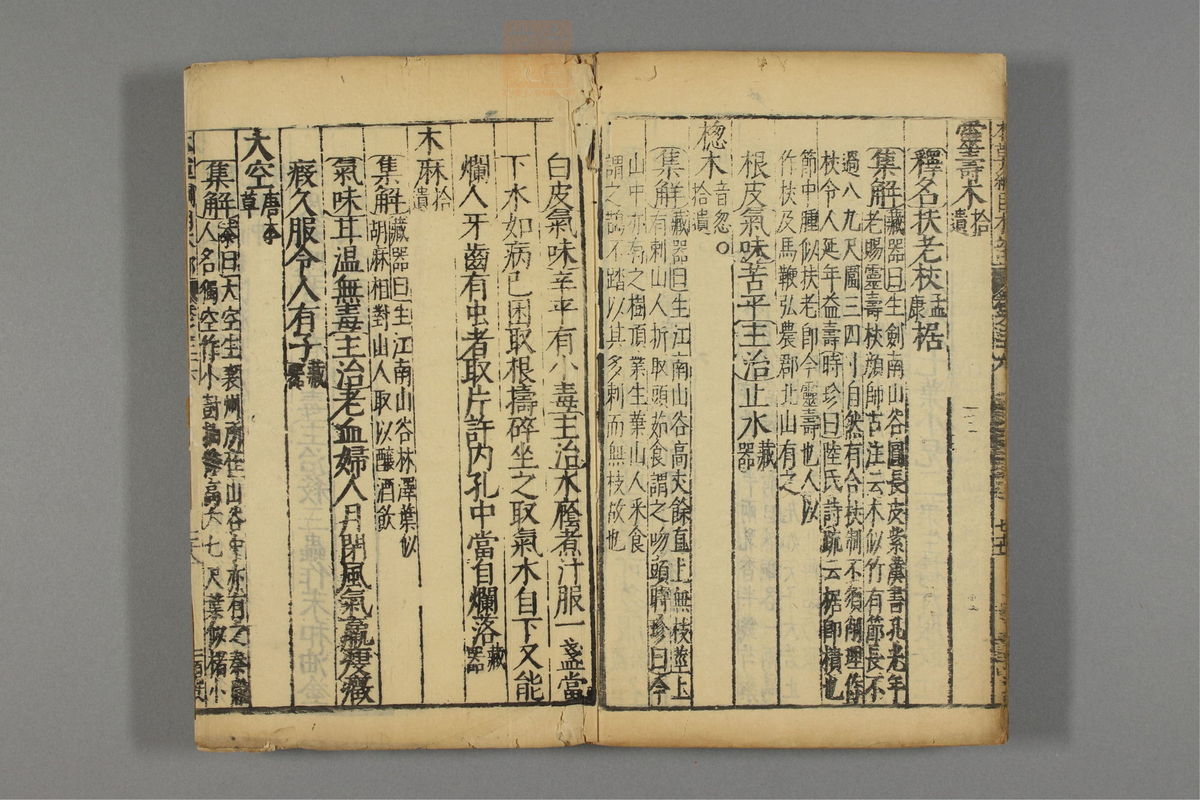 靈壽木拾遺
釋名扶老杖孟康椐
集解藏器曰生劍南山谷圓長皮紫漢書孔光年
老賜靈壽杖顏師古注云木似竹有節長不
過八九尺圍三四寸自然有合杖制不須削理作
杖令人延年益壽時珍曰陸氏詩疏云椐即樻也
節中腫似扶老即今靈壽也人以
作杖及馬鞭弘農郡北山有之
根皮氣味苦平主治止水藏器
楤木音忽○拾遺
集解藏器曰生江南山谷高丈餘直上無枝莖上
有刺山人折取頭茹食謂之吻頭時珍曰今
山中亦有之樹頂叢生葉山人采食
謂之鵲不踏以其多刺而無枝故也
白皮氣味辛平有小毒主治水癊煮汁服一盞當
下水如病已困取根擣碎坐之取氣水自下又能
爛人牙齒有虫者取片許內孔中當自爛落藏器
木麻拾遺
集解藏器曰生江南山谷林澤葉似
胡麻相對山人取以釀酒飲
氣味甘温無毒主治老血婦人月閉風氣羸瘦癥
瘕久服令人有子藏器
大空唐本草
集解恭曰大空生襄州所在山谷中亦有之秦隴
人名獨空作小樹抽條高六七尺葉似楮小